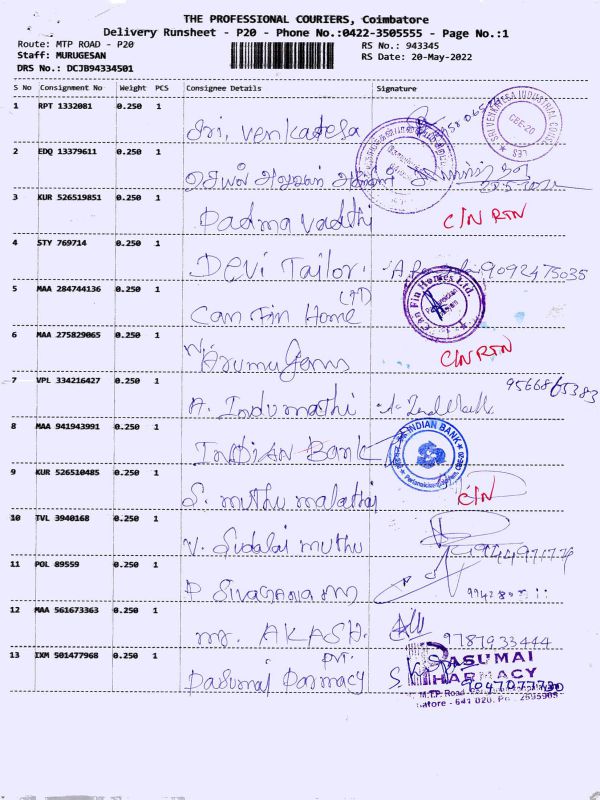 THE PROFESSIONAL COURIERS, Coimbatore
Delivery Runsheet - P20 - Phone No.:0422-3505555 - Page No.:1
Route: MTP ROAD - P20
RS No.: 943345
Staff: MURUGESAN
RS Date: 20-May-2022
DRS No.: DCJB94334501
S No Consignment No Weight PCS Consignee Details Signature
1 RPT 1332081 0.250 1 Sri, venkatesa
SRI VENKATESA INDUSTRIAL CBE-20
2 EDQ 13379611 0.250 1
3 KUR 526519851 0.250 1 Padma vadthi C/N RTN
4 STY 769714 0.250 1 Devi Tailor. 9092475035
5 MAA 284744136 0.250 1 Can Fin Home Can Fin Homes Ltd.
6 MAA 275829065 0.250 1 Arumugam C/N RTN
7 VPL 334216427 0.250 1 A. Indumathi
8 MAA 941943991 0.250 1 INDIAN Bank INDIAN BANK
9 KUR 526510485 0.250 1 S. muthu malathi C/N
10 TVL 3940168 0.250 1 V. Sudalai muthu
11 POL 89559 0.250 1 P Sivaganam
12 MAA 561673363 0.250 1 mr. AKASH. 9787933444
13 IXM 501477968 0.250 1 Pasumai Parmacy PVT.
PASUMAI
PHARMACY
M.T.P. Road